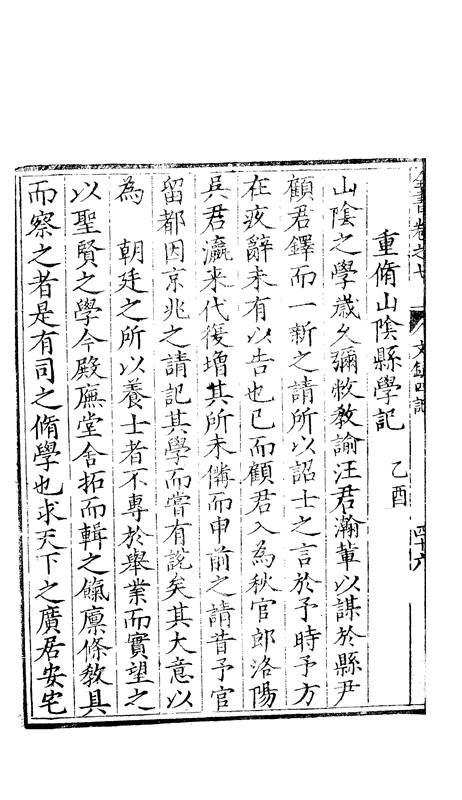 全書卷之七　文錄四記　四十六
重脩山陰縣學記　乙酉
山陰之學歲久彌敝教諭汪君瀚輩以謀於縣尹
顧君鐸而一新之請所以詔士之言於予時予方
在疚辭未有以告也已而顧君入為秋官郎洛陽
吳君瀛來代復增其所未備而申前之請昔予官
留都因京兆之請記其學而嘗有說矣其大意以
為　朝廷之所以養士者不專於舉業而實望之
以聖賢之學今殿廡堂舍拓而輯之餼廩條教具
而察之者是有司之脩學也求天下之廣居安宅